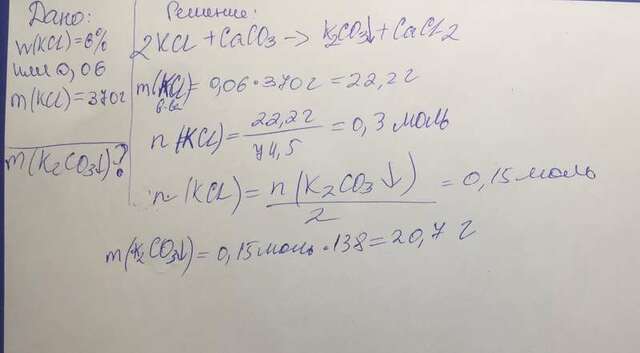 Дано:
w(KCl)=6%
или 0,06
m(KCl)=370г
m(K2CO3↓)?
Решение:
2KCl+CaCO3→K2CO3↓+CaCl2
m(KCl)=0,06·370г=22,2г
в-ва
n(KCl)=22,2г/74,5=0,3моль
n(KCl)=n(K2CO3↓)/2=0,15моль
m(K2CO3↓)=0,15моль·138=20,7г